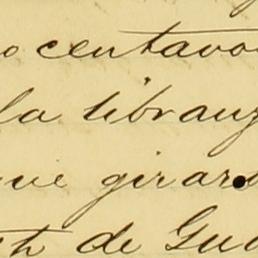 centavos
la libranz
que girar
de Gua